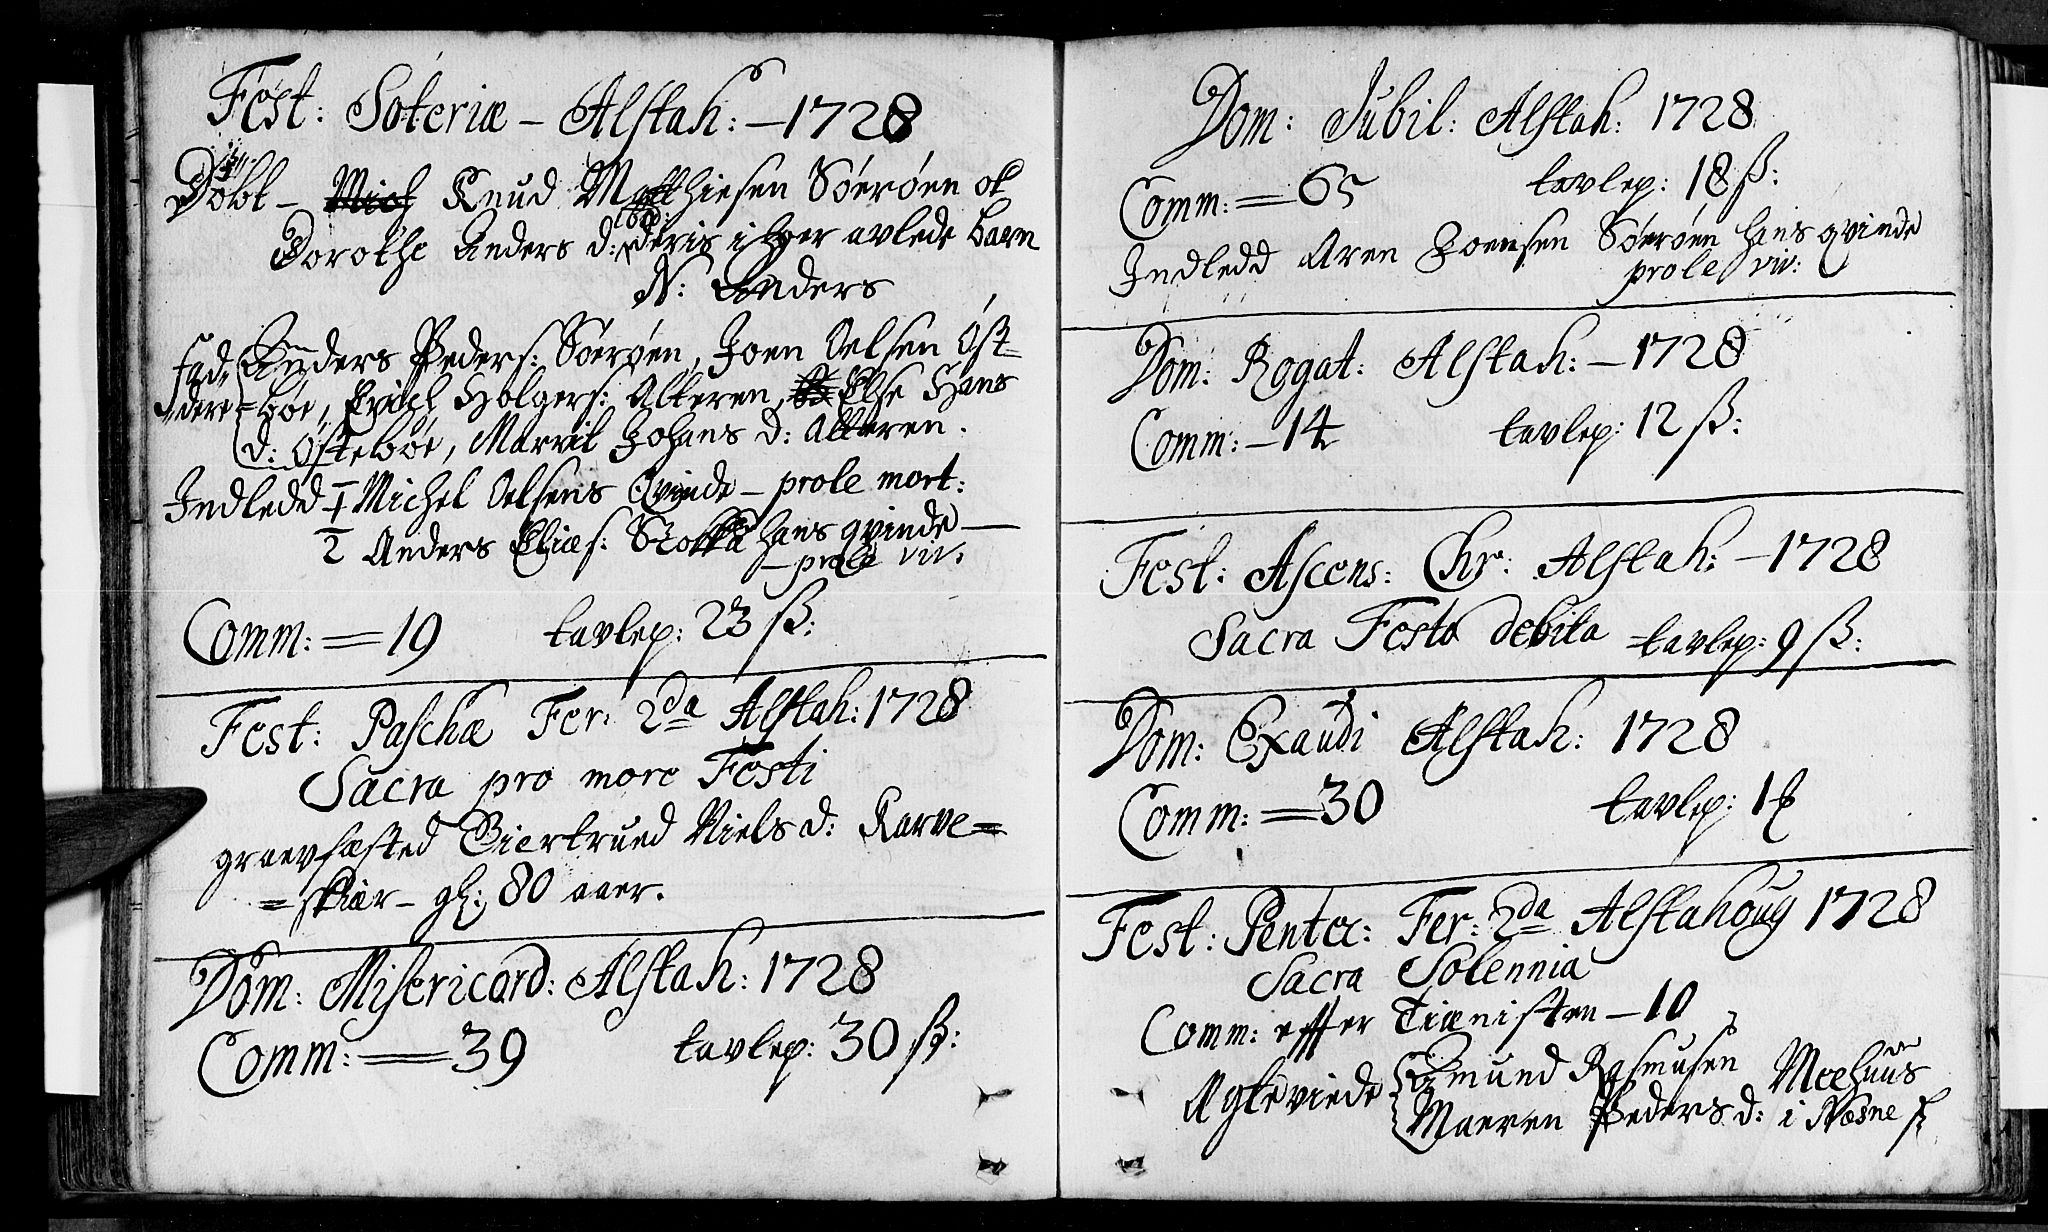 Fest: Soteriæ - Alstah: - 1728
Døbt - Knud Matthiesen Søerøen ok
Dorothe Anders d: deris i Hoer avlede barn
N: Anders
fad= Anders Peders: Søerøen, Joen Oelsen Øst=
dere =bøe, Erich Holgers: Alteren, Else Hans
d: Østebøe, Marrit Johans d: Alteren.
Indledd 1 Michel Oelsens Qvinde - prole mort:
2 Anders Eliæs: Stokka hans qvinde -
- prole viv:
Comm: = 19 tavlep: 23 ß:
Fest: Paschæ Fer: 2da Alstah: 1728
Sacra pro more Festi
graevfæsted Giertrued Niels d: Karve=
=skiær - gl: 80 aaer.
Dom: Misericord: Alstah: 1728
Comm: = 39 tavlep: 30 ß:
Dom: Jubil: Alstah: 1728
Comm: = 65 tavlep: 18 ß:
Indledd Aren Joensen Søerøen hans qvinde
prole viv:
Dom: Rogat: Alstah: - 1728
Comm: - 14 tavlep: 12 ß:
Fest: Ascens: Chr: Alstah: - 1728
Sacra Festo debita - tavlep: 9 ß:
Dom: Exaudi Alstah: 1728
Comm: = 30 tavlep: 1
Fest: Pentec: Fer: 2da Alstahoug 1728
Sacra Solennia
Comm: effter Tiænisten - 10
Ægteviede Rasmusen Meehuus
Maeren Peders d: i Næsne